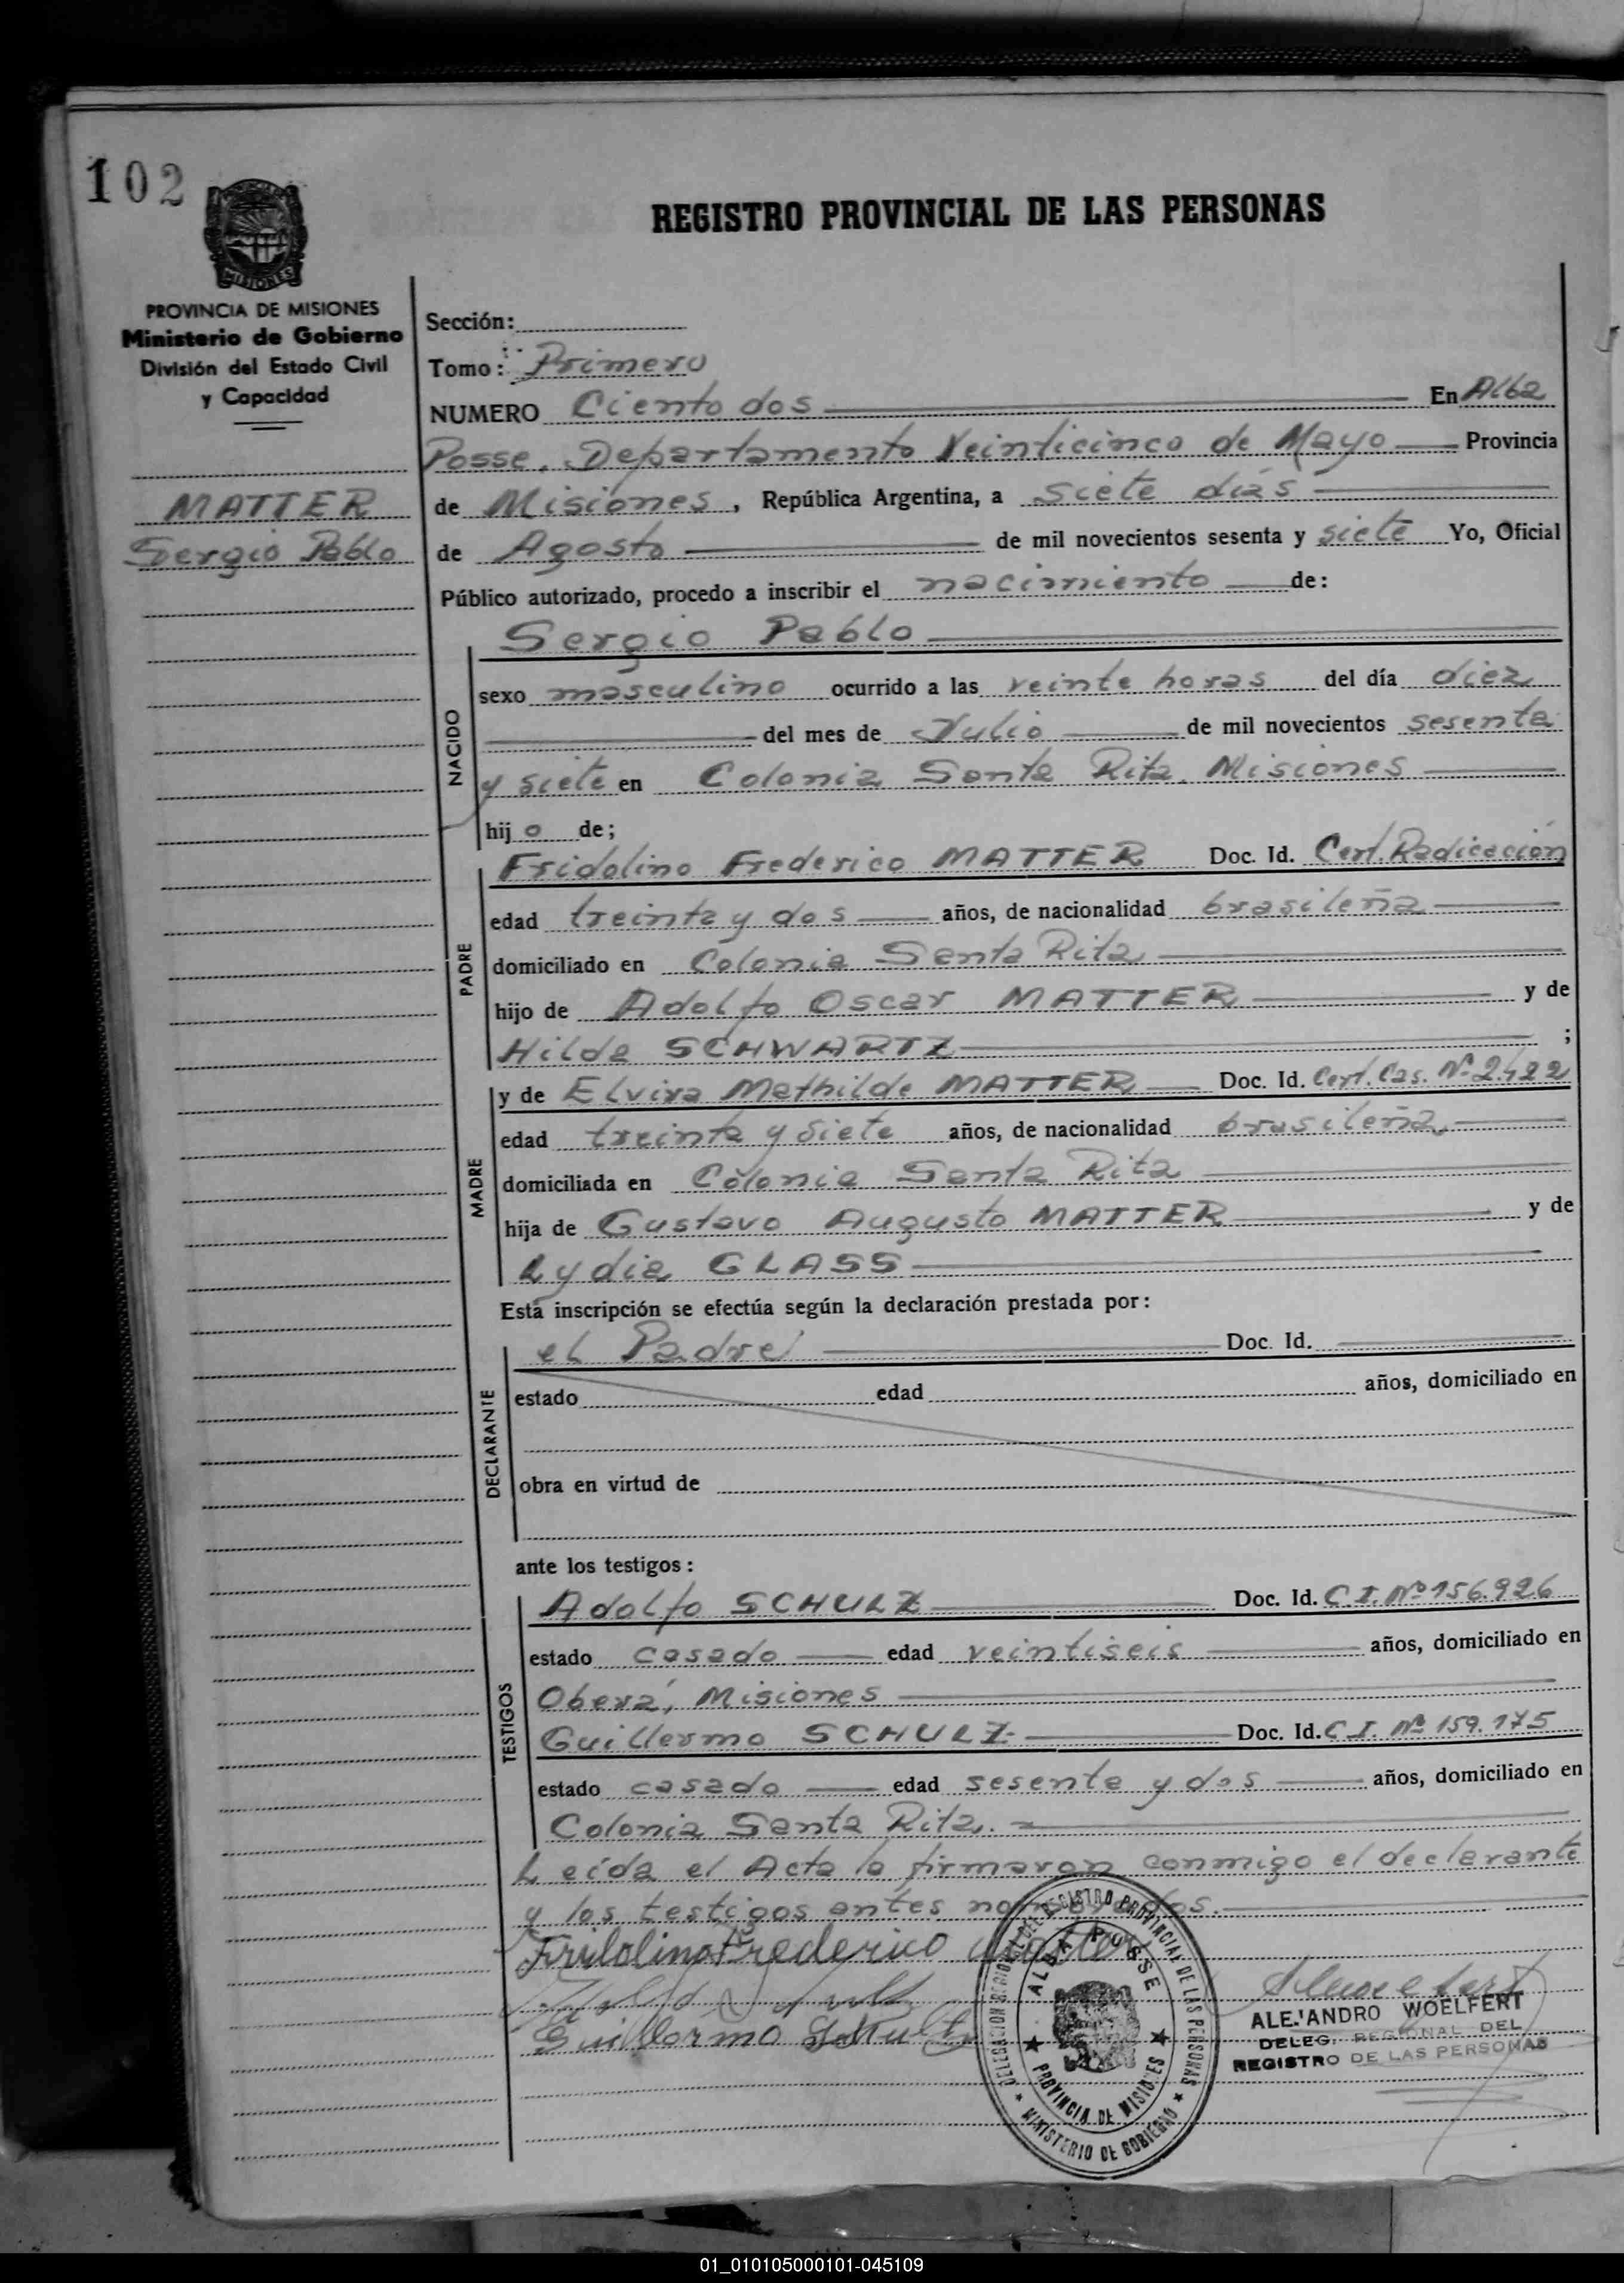 102
REGISTRO PROVINCIAL DE LAS PERSONAS
MISIONES
PROVINCIA DE MISIONES
Ministerio de Gobierno
División del Estado Civil
y Capacidad
MATTER
Sergio Pablo
Sección:
Tomo: Primero
NUMERO Ciento dos En Alba
Posse, Departamento Veinticinco de Mayo Provincia
de Misiones, República Argentina, a siete días
de Agosto de mil novecientos sesenta y siete Yo, Oficial
Público autorizado, procedo a inscribir el nacimiento de:
Sergio Pablo
NACIDO
sexo masculino ocurrido a las veinte horas del día diez
del mes de Julio de mil novecientos sesenta
y siete en Colonia Santa Rita, Misiones
hijo de;
PADRE
Fridolino Frederico MATTER Doc. Id. Cert. Radicación
edad treinta y dos años, de nacionalidad brasileña
domiciliado en Colonia Santa Rita
hijo de Adolfo Oscar MATTER y de
Hilda SCHWARTZ ;
MADRE
y de Elvira Mathilde MATTER Doc. Id. Cert. Cas. Nº 2.422
edad treinta y siete años, de nacionalidad brasileña
domiciliada en Colonia Santa Rita
hija de Gustavo Augusto MATTER y de
Lydia GLASS
Esta inscripción se efectúa según la declaración prestada por:
DECLARANTE
el Padre Doc. Id.
estado edad años, domiciliado en
obra en virtud de
ante los testigos:
TESTIGOS
Adolfo SCHULZ Doc. Id. C.I. Nº 156.926
estado casado edad veintiseis años, domiciliado en
Oberá, Misiones
Guillermo SCHULZ Doc. Id. C.I. Nº 159.175
estado casado edad sesenta y dos años, domiciliado en
Colonia Santa Rita.
Leída el Acta la firmaron conmigo el declarante
y los testigos antes nombrados.
Fridolino Frederico Matter
Guillermo Schultz
DELEGACION REGIONAL DEL REGISTRO PROVINCIAL DE LAS PERSONAS
ALBA POSSE
PROVINCIA DE MISIONES
MINISTERIO DE GOBIERNO
ALEJANDRO WOELFERT
DELEG. REGIONAL DEL
REGISTRO DE LAS PERSONAS
01_010105000101-045109